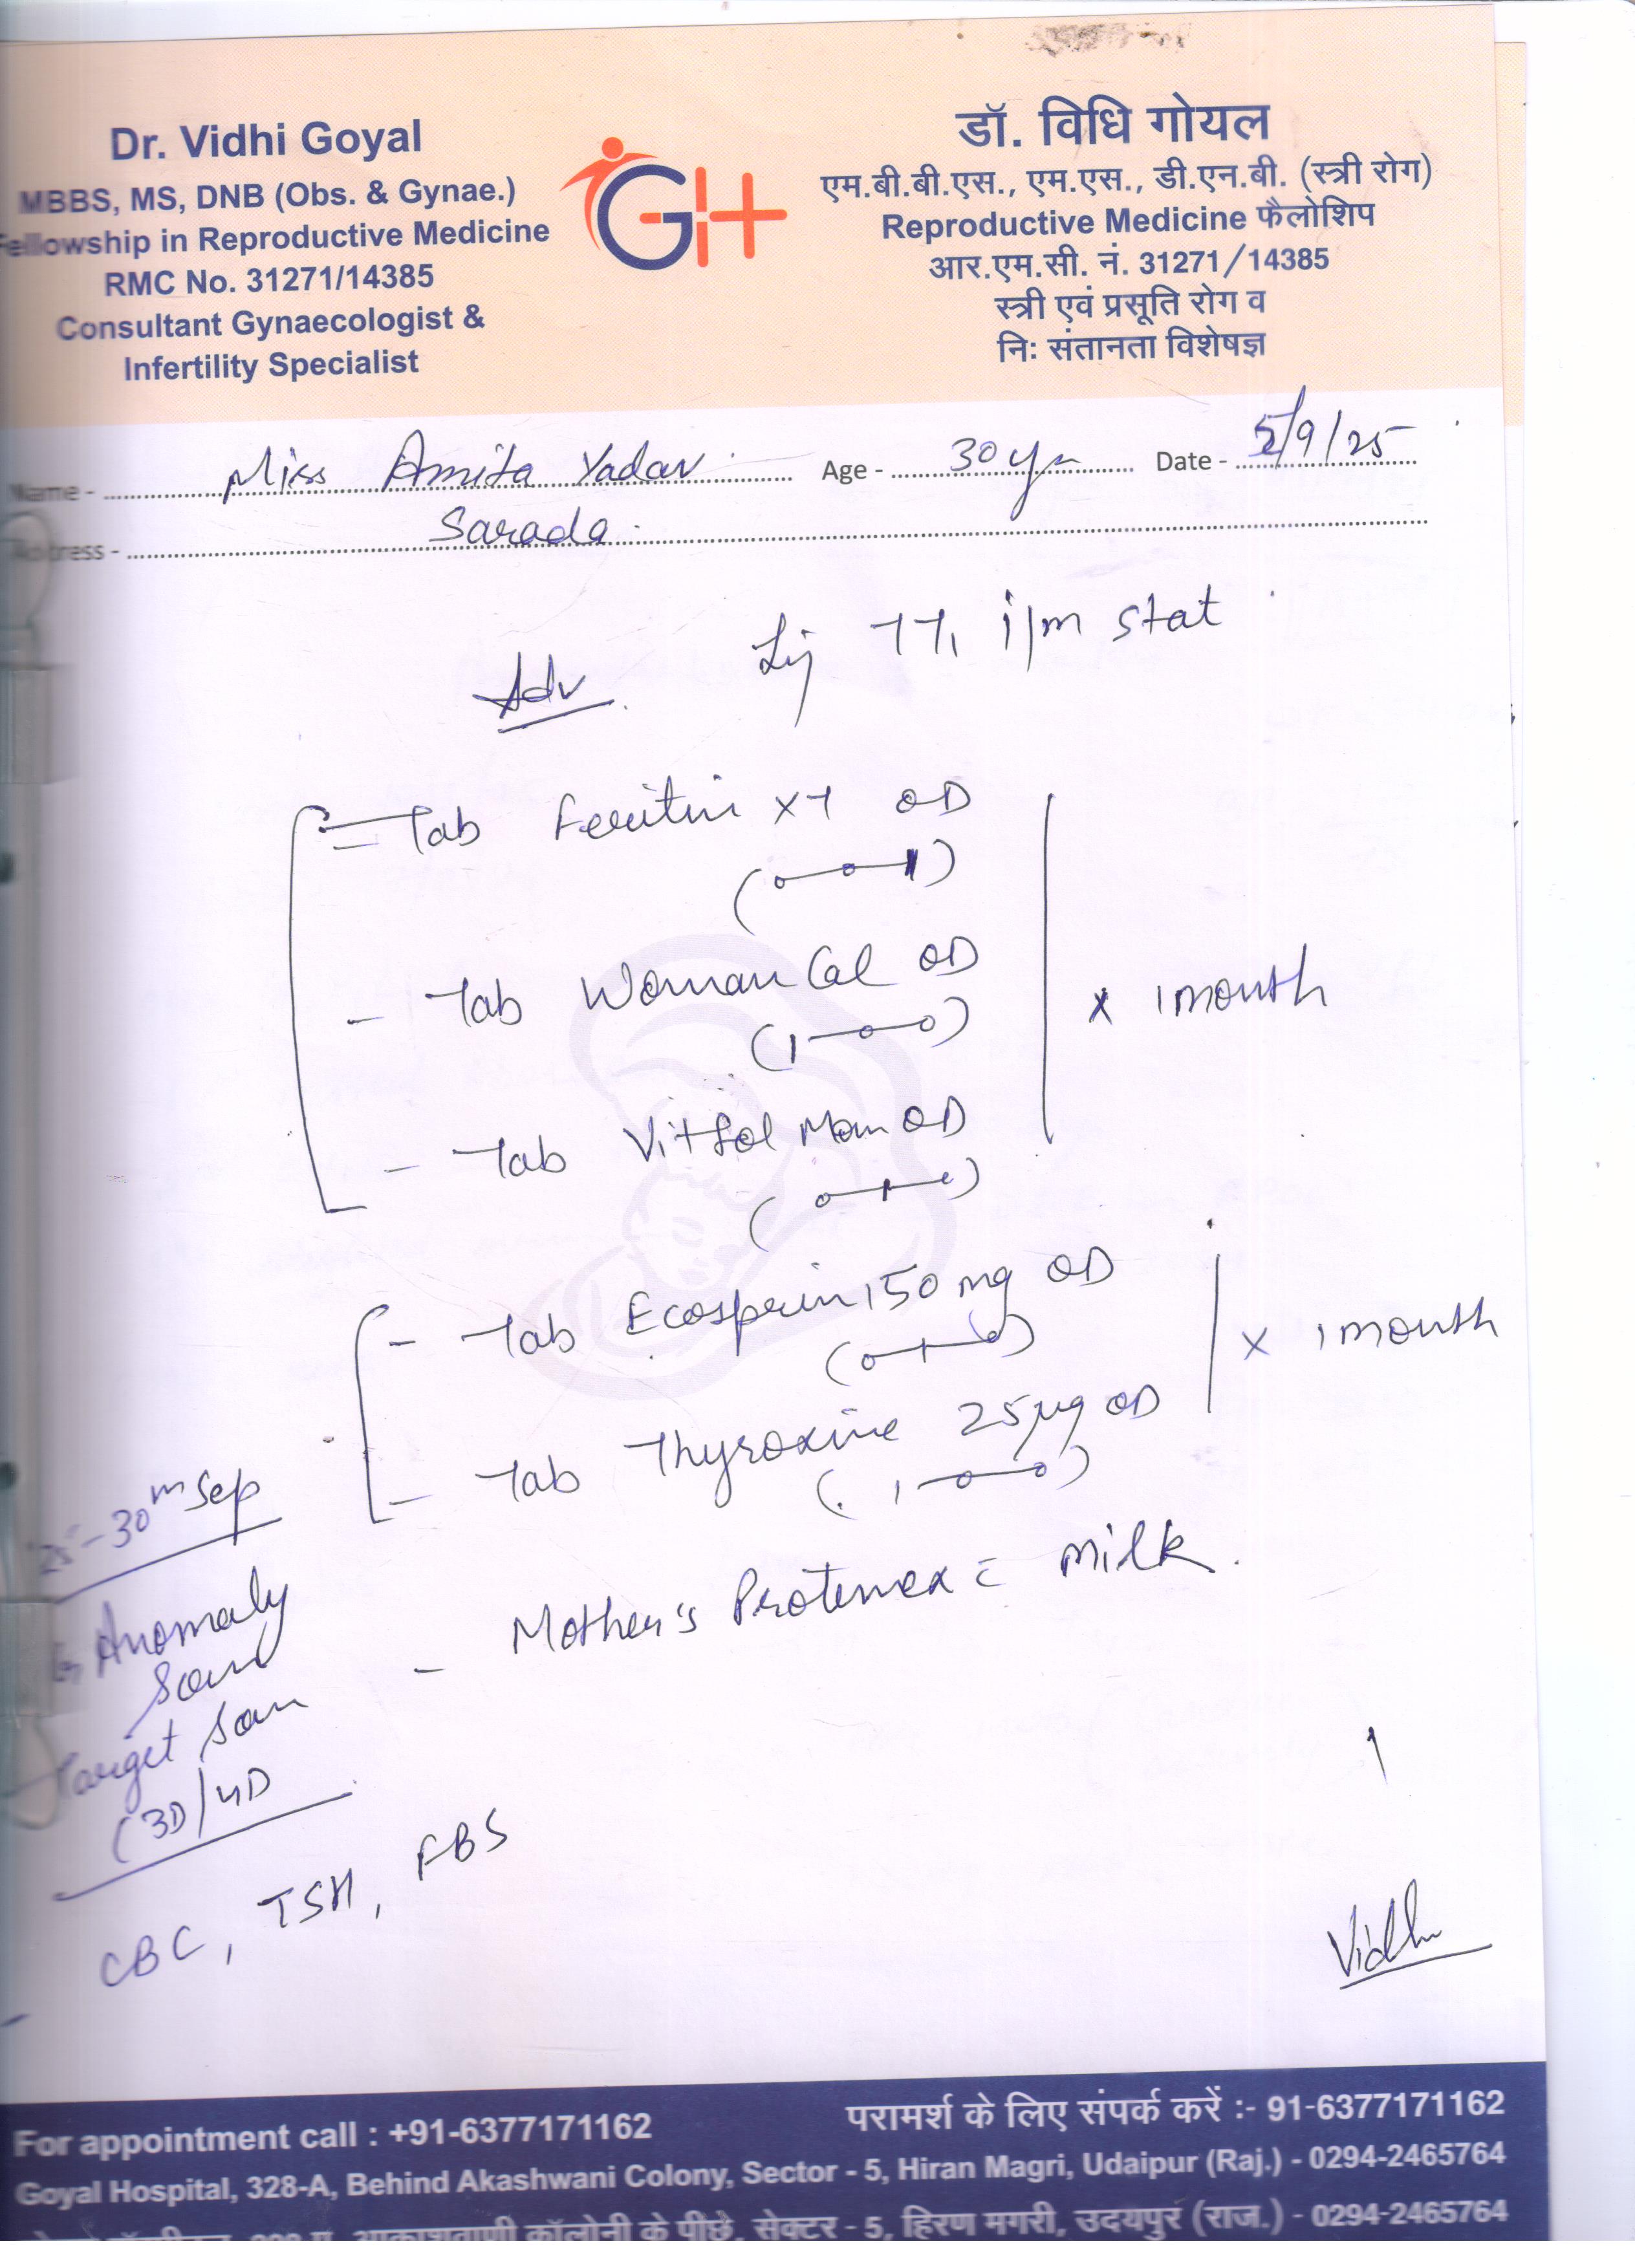 Dr. Vidhi Goyal
MBBS, MS, DNB (Obs. & Gynae.)
Fellowship in Reproductive Medicine
RMC No. 31271/14385
Consultant Gynaecologist &
Infertility Specialist
GH
डॉ. विधि गोयल
एम.बी.बी.एस., एम.एस., डी.एन.बी. (स्त्री रोग)
Reproductive Medicine फैलोशिप
आर.एम.सी. नं. 31271/14385
स्त्री एवं प्रसूति रोग व
नि: संतानता विशेषज्ञ
Name - Miss Amita Yadav Age - 30 yr Date - 5/9/25
Address - Sarada
Inj TT, i/m stat
Adv
- Tab XT OD
(0-0-1)
- Tab Woman Cal OD
(1-0-0)
- Tab Vitfol Mom OD
(0-1-0)
x 1 month
- Tab Ecosprin 150 mg OD
(0-1-0)
- Tab Thyroxine 25 µg OD
(1-0-0)
x 1 month
- Mother's Protemex c milk.
25-30th Sep
Anomaly
Scan
Target Scan
(3D/4D
CBC, TSH, FBS
Vidhi
For appointment call : +91-6377171162
परामर्श के लिए संपर्क करें :- 91-6377171162
Goyal Hospital, 328-A, Behind Akashwani Colony, Sector - 5, Hiran Magri, Udaipur (Raj.) - 0294-2465764
आकाशवाणी कॉलोनी के पीछे, सेक्टर - 5, हिरण मगरी, उदयपुर (राज.) - 0294-2465764